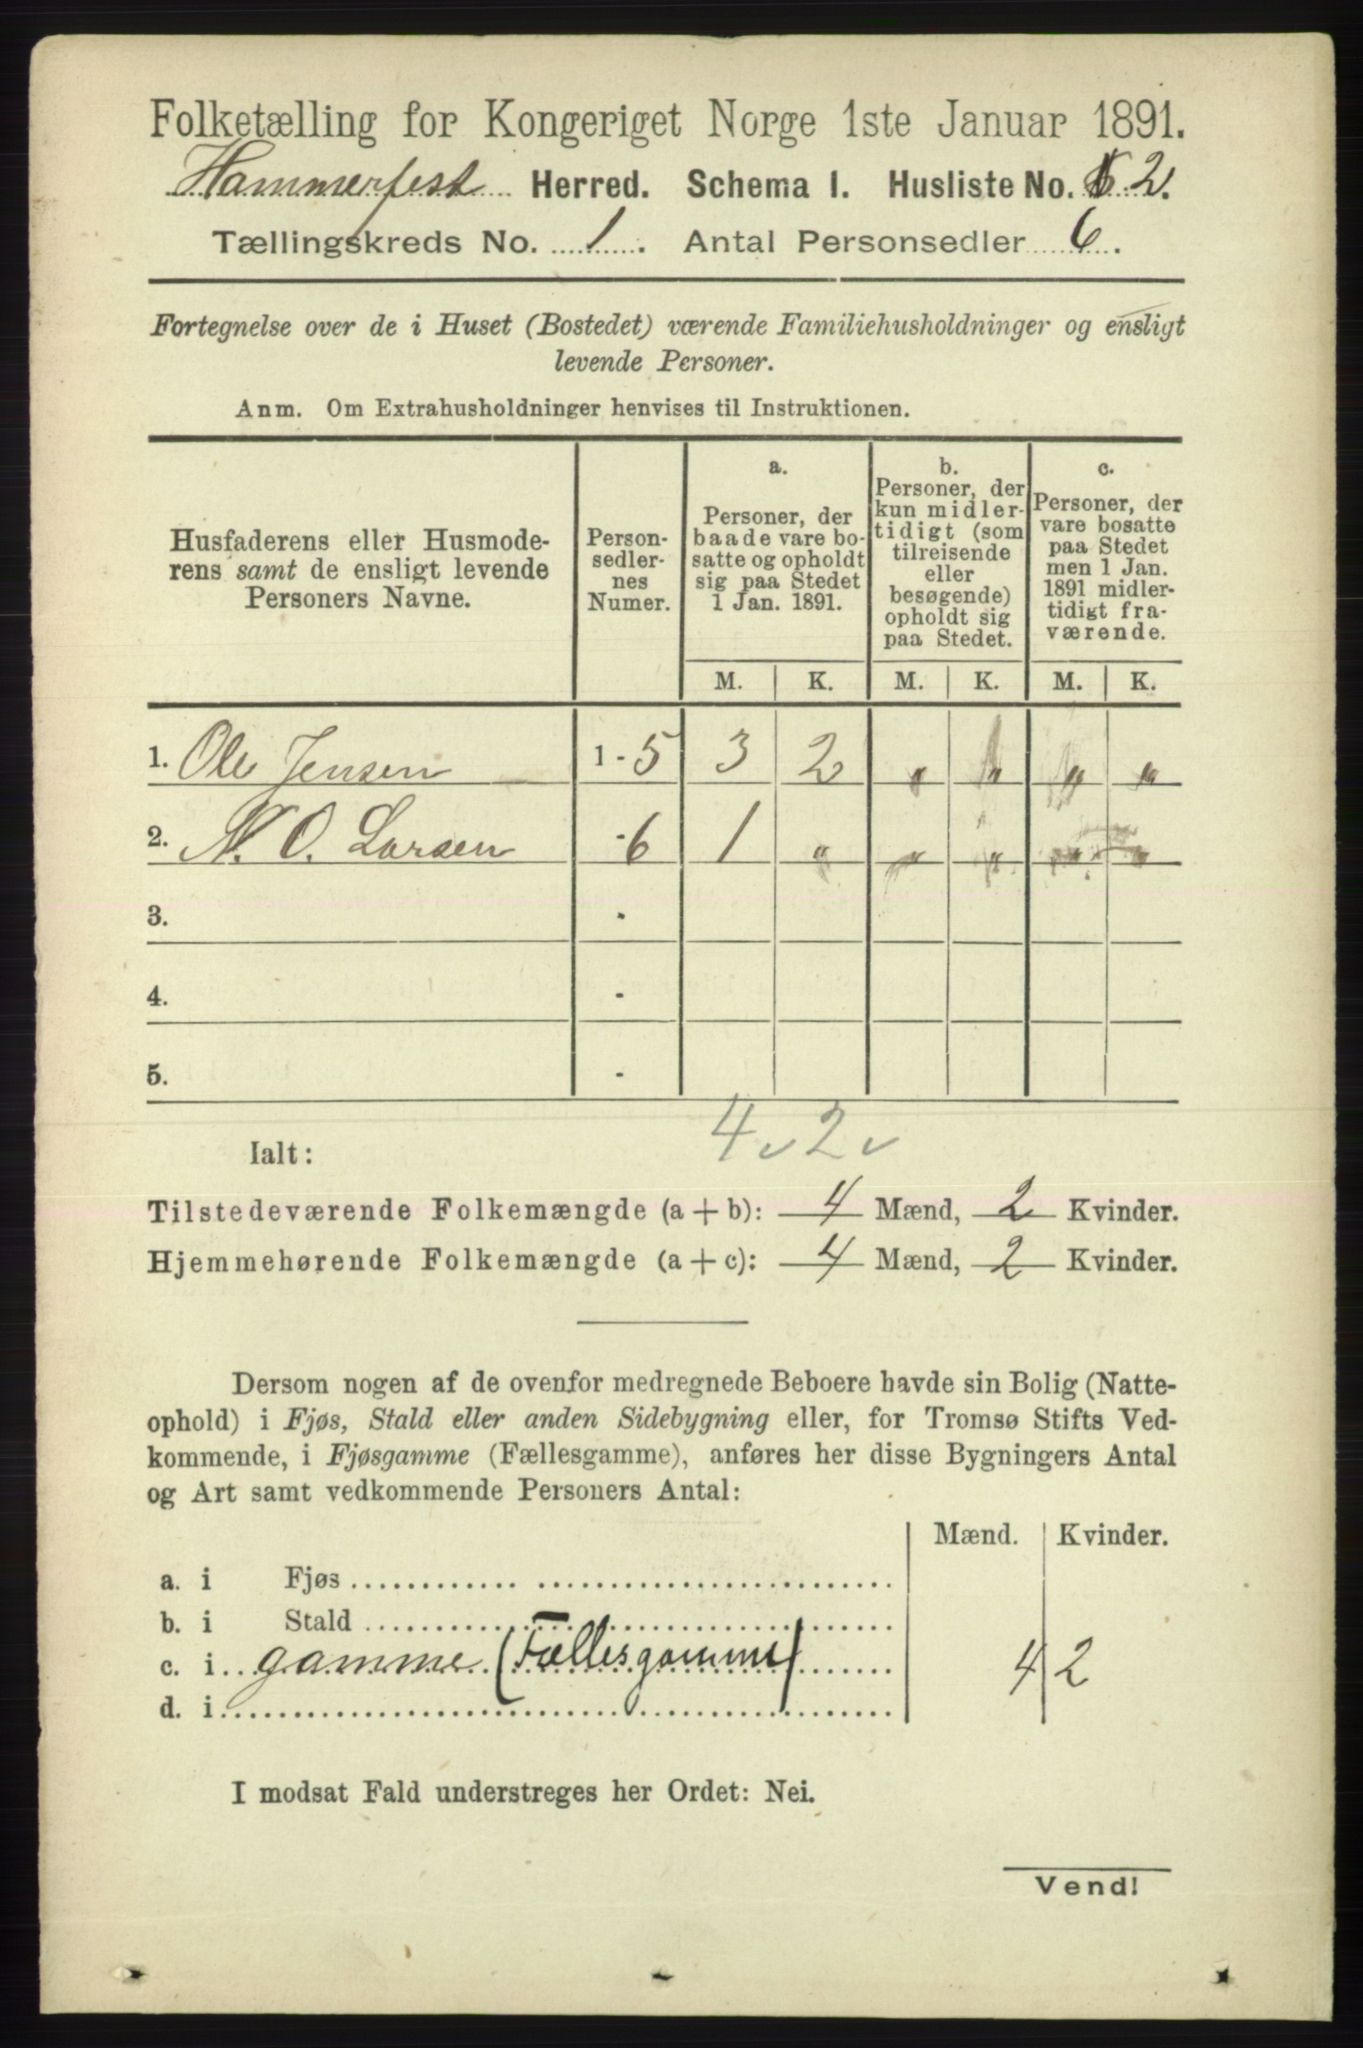 Folketælling for Kongeriget Norge 1ste Januar 1891.
Hammerfest Herred. Schema 1. Husliste No. 2.
Tællingskreds No. 1. Antal Personsedler 6.
Fortegnelse over de i Huset (Bostedet) værende Familiehusholdninger og ensligt
levende Personer.
Anm. Om Extrahusholdninger henvises til Instruktionen.
Husfaderens eller Husmode-
rens samt de ensligt levende
Personers Navne.
Person-
sedler-
nes
Numer.
a.
Personer, der
baade vare bo-
satte og opholdt
sig paa Stedet
1 Jan. 1891.
b.
Personer, der
kun midler-
tidigt (som
tilreisende
eller
besøgende)
opholdt sig
paa Stedet.
c.
Personer, der
vare bosatte
paa Stedet
men 1 Jan.
1891 midler-
tidigt fra-
værende.
M. K. M. K. M. K.
1. Ole Jensen 1 - 5 3 2 „ „ „ „
2. N. O. Larsen - 6 1 „ „ „ „ „
3. -
4. -
5. -
Ialt: 4 ✓ 2 ✓
Tilstedeværende Folkemængde (a + b): 4 Mænd, 2 Kvinder.
Hjemmehørende Folkemængde (a + c): 4 Mænd, 2 Kvinder.
Dersom nogen af de ovenfor medregnede Beboere havde sin Bolig (Natte-
ophold) i Fjøs, Stald eller anden Sidebygning eller, for Tromsø Stifts Ved-
kommende, i Fjøsgamme (Fællesgamme), anføres her disse Bygningers Antal
og Art samt vedkommende Personers Antal:
Mænd. Kvinder.
a. i Fjøs
b. i Stald
c. i gamme (Fællesgamme) 4 2
d. i
I modsat Fald understreges her Ordet: Nei.
Vend!